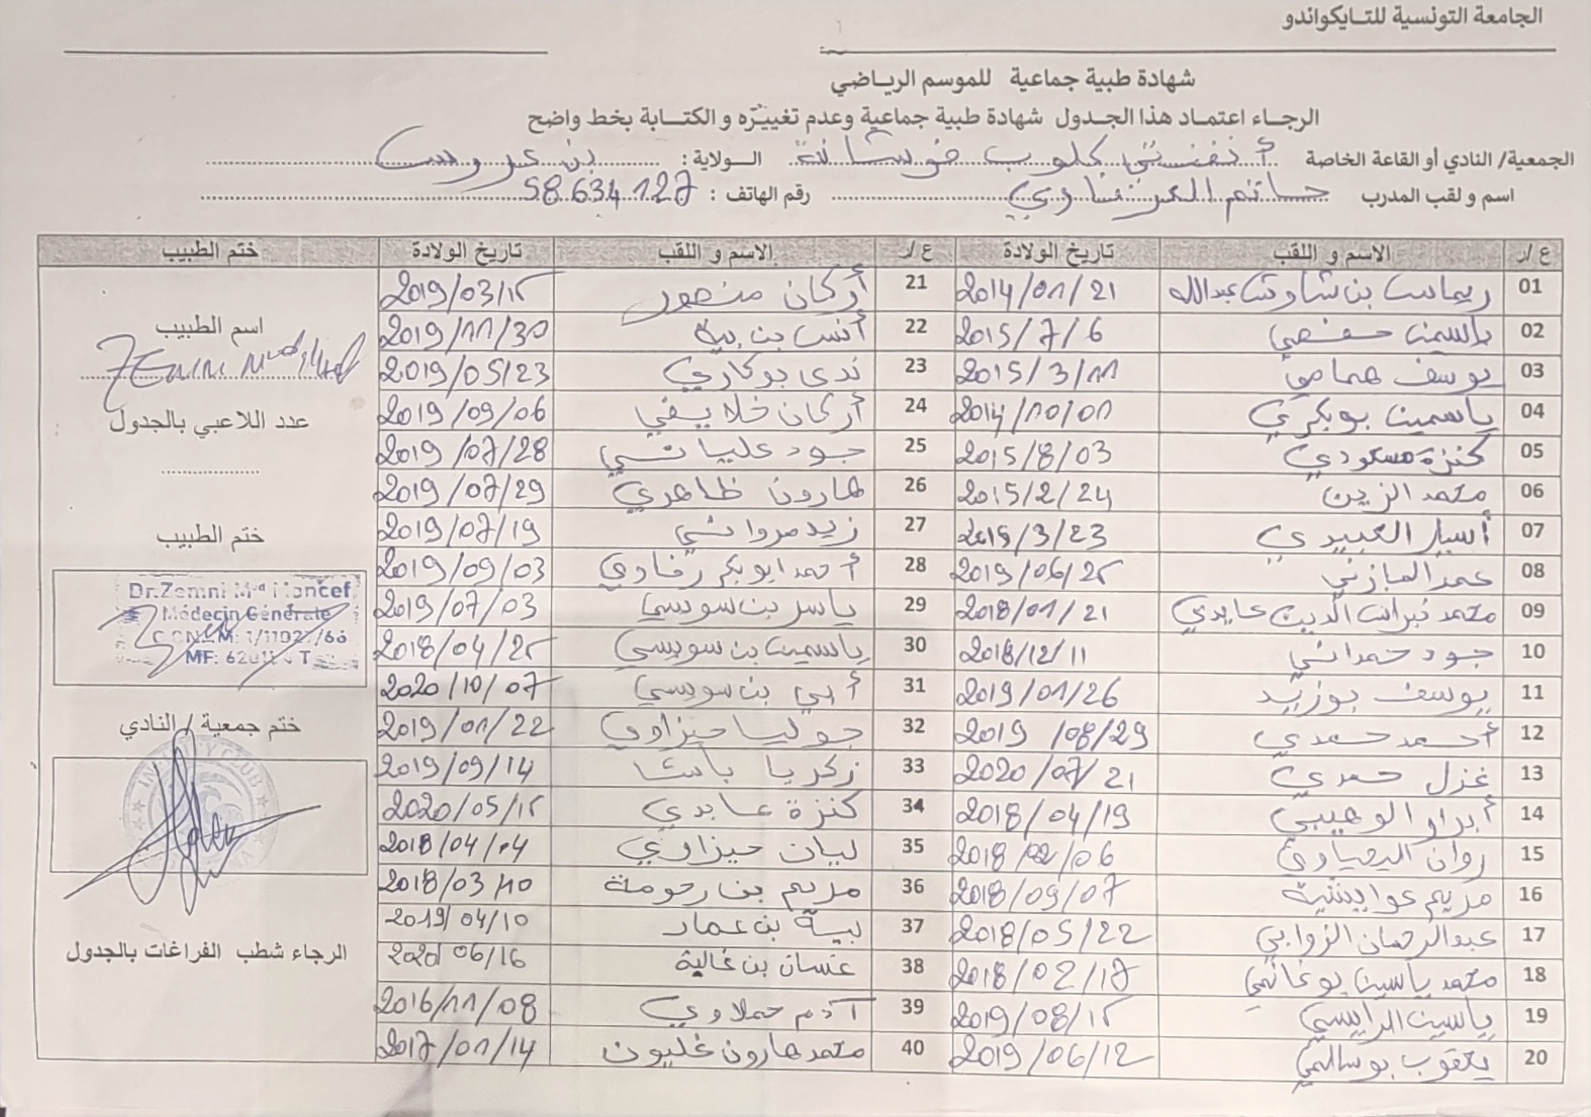 الجامعة التونسية للتايكواندو
شهادة طبية جماعية للموسم الرياضي
الرجاء اعتماد هذا الجدول شهادة طبية جماعية وعدم تغييره والكتابة بخط واضح
الجمعية/ النادي أو القاعة الخاصة أنفنتي كلوب خوشانة الولاية: بن عروس
اسم ولقب المدرب حاتم العرفاوي رقم الهاتف: 58.634.127
ع/ر الاسم و اللقب تاريخ الولادة ع/ر الاسم و اللقب تاريخ الولادة ختم الطبيب
01 ريماس بن شاوش عبدالله 2014/01/21 21 أركان منصور 2019/03/15
02 ياسمين حفصي 2015/7/6 22 أنس بن بية 2019/11/30
03 يوسف همامي 2015/3/11 23 ندى بوكاري 2019/05/23
04 ياسمين بوبكري 2014/10/01 24 أركان خلايفي 2019/09/06
05 كنزة مسعودي 2015/8/03 25 جود علياني 2019/07/28
06 محمد الزين 2015/2/24 26 هارون ظاهري 2019/07/29
07 أسيل العبيدي 2015/3/23 27 زيد مرواني 2019/07/19
08 عمر المازني 2019/06/25 28 أحمد ابوبكر رفادي 2019/09/03
09 محمد نبراس الدين عابدي 2018/01/21 29 ياسر بن سويسي 2019/07/03
10 جود حمداني 2018/12/11 30 ياسمين بن سويسي 2018/04/25
11 يوسف بوزيد 2019/01/26 31 أبي بن سويسي 2020/10/07
12 أحمد حمدي 2019/08/29 32 جوليا حيزاوي 2019/01/22
13 غزل حمدي 2020/07/21 33 زكريا باشا 2019/09/14
14 أبرار الوهيبي 2018/04/19 34 كنزة عابدي 2020/05/15
15 روان اليحياوي 2018/02/06 35 ليان حيزاوي 2018/04/04
16 مريم عوايشية 2018/09/07 36 مريم بن رحومة 2018/03/10
17 عبدالرحمان الزوابي 2018/05/22 37 بية بن عمار 2019/04/10
18 محمد ياسين بوغانمي 2018/02/17 38 غسان بن غالية 2020/06/16
19 ياسين الرايسي 2019/08/15 39 آدم حملاوي 2016/11/08
20 يعقوب بوسالمي 2019/06/12 40 محمد هارون غليون 2017/01/14
اسم الطبيب
عدد اللاعبي بالجدول
ختم الطبيب
Dr.Zemni Md Moncef
Médecin Générale
ختم جمعية / النادي
الرجاء شطب الفراغات بالجدول